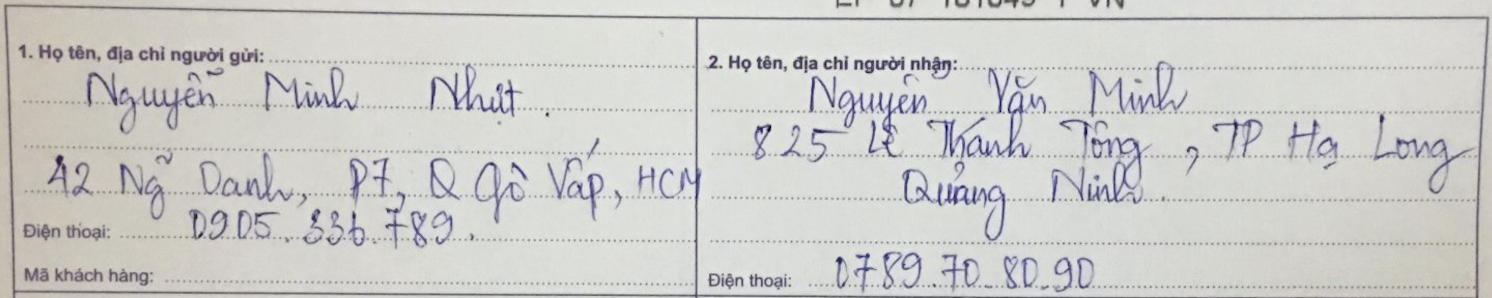 1. Họ tên, địa chỉ người gửi:
Nguyễn Minh Nhựt.
42 Ng̃ Danh, P7, Q Gò Vấp, HCM
Điện thoại: 0905.336.789.
Mã khách hàng:
2. Họ tên, địa chỉ người nhận:
Nguyễn Văn Minh
825 Lê Thánh Tông, TP Hạ Long
Quảng Ninh.
Điện thoại: 0789.70.80.90